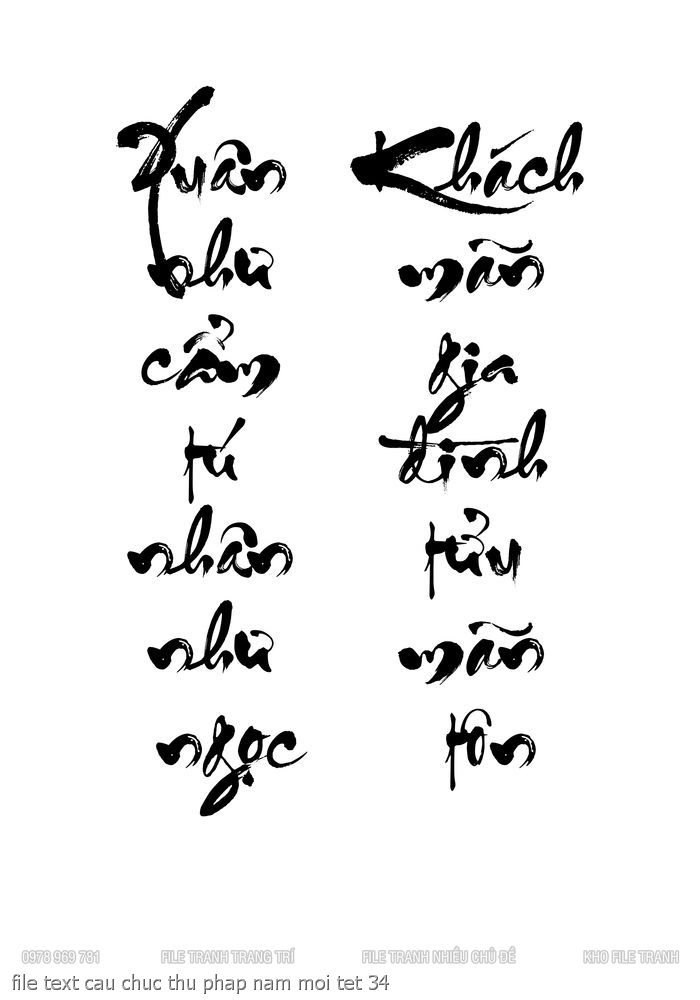 Xuân
như
cẩm
tú
nhân
như
ngọc
Khách
mãn
gia
đình
tửu
mãn
tôn
0978 969 781 FILE TRANH TRANG TRÍ FILE TRANH NHIỀU CHỦ ĐỀ KHO FILE TRANH
file text cau chuc thu phap nam moi tet 34